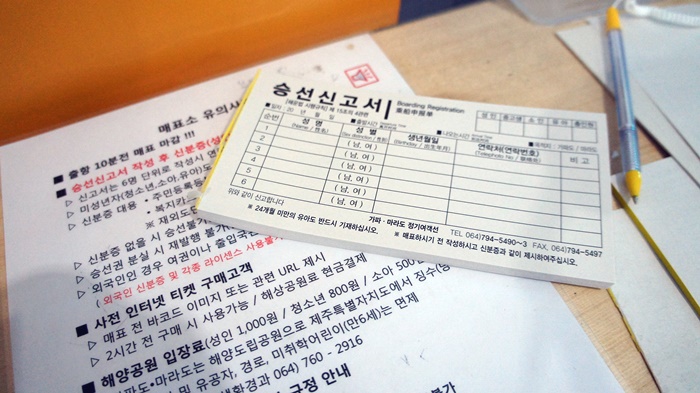 매표소 유의사
■ 출항 10분전 매표 마감 !!!
■ 승선신고서 작성 후 신분증(
▷ 신고서는 6명 단위로 작성시
▷ 미성년자(청소년,소아,유아)도
▷ 신분증 대용 • 주민등록등
※ 재외도
▷ 신분증 없을 시 승선불가
▷ 승선권 분실 시 재발행 불가
▷ 외국인인 경우 여권이나 출입국
( 외국인 신분증 및 각종 라이센스 사용불
■ 사전 인터넷 티켓 구매고객
▷ 매표 전 바코드 이미지 또는 관련 URL 제시
▷ 2시간 전 구매 시 사용가능 / 해상공원료 현금결제
■ 해양공원 입장료(성인 1,000원 / 청소년 800원 / 소아 500
파도•마라도는 해양도립공원으로 제주특별자치도에서 징수
및 유공자, 경로, 미취학어린이(만6세)는 면제
생환경과 064) 760 - 2916
규정 안내
불가
승선신고서
Boarding Registration
乘船申報單
[해운법 시행규칙] 제 15조의 4관련
성인 중고생 소인 유아 총인원
■ 일자 : 20 년 월 일
■ 출항시간
■ 나오는시간
■ 목적지
순번 성명 (Name / 姓名) 성별 생년월일 (Birthday / 出生年月) 연락처(연락번호) (Telephone No / 聯絡處) 비고
1 (남, 여)
2 (남, 여)
3 (남, 여)
4 (남, 여)
5 (남, 여)
6 (남, 여)
위와 같이 신고합니다
가파 · 마라도 정기여객선 TEL 064)794-5490~3 FAX. 064)794-5497
※ 24개월 미만의 유아도 반드시 기재하십시오.
※ 매표하시기 전 작성하시고 신분증과 같이 제시하여주십시오.